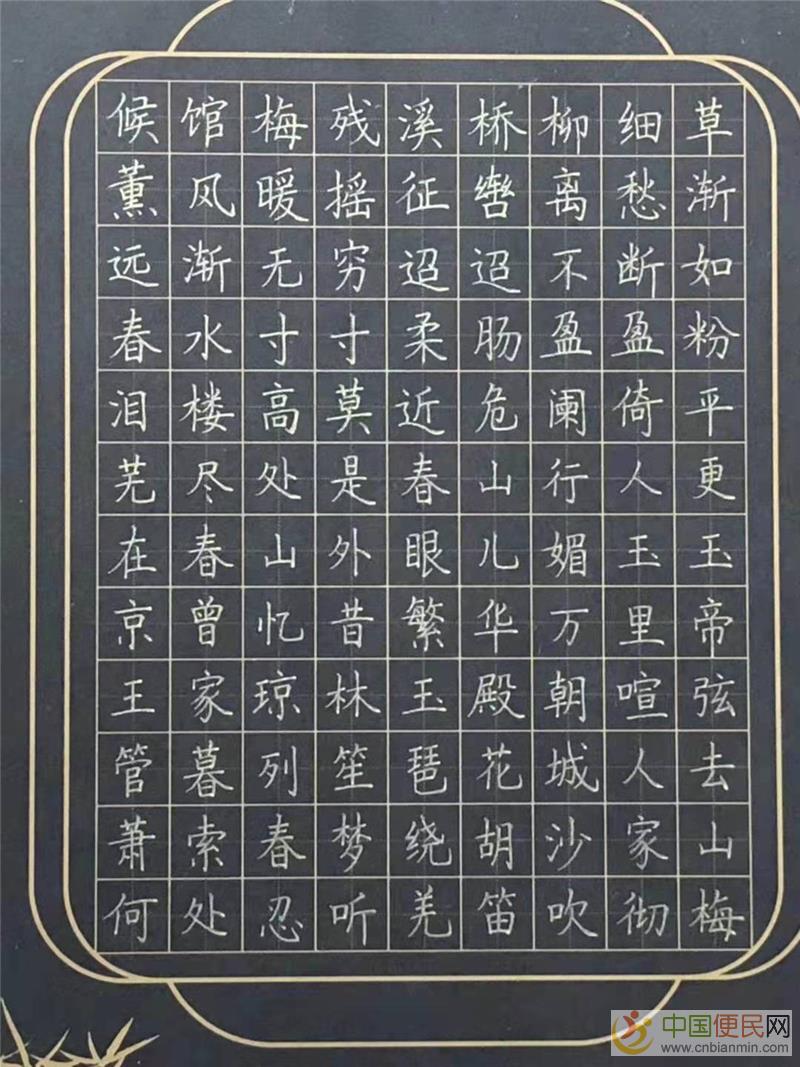 候馆梅残溪桥柳细草
薰风暖摇征辔离愁渐
远渐无穷迢迢不断如
春水寸寸柔肠盈盈粉
泪楼高莫近危阑倚平
芜尽处是春山行人更
在春山外眼儿媚玉玉
京曾忆昔繁华万里帝
王家琼林玉殿朝喧弦
管暮列笙琶花城人去
萧索春梦绕胡沙家山
何处忍听羌笛吹彻梅
中国便民网
www.cnbianmin.com